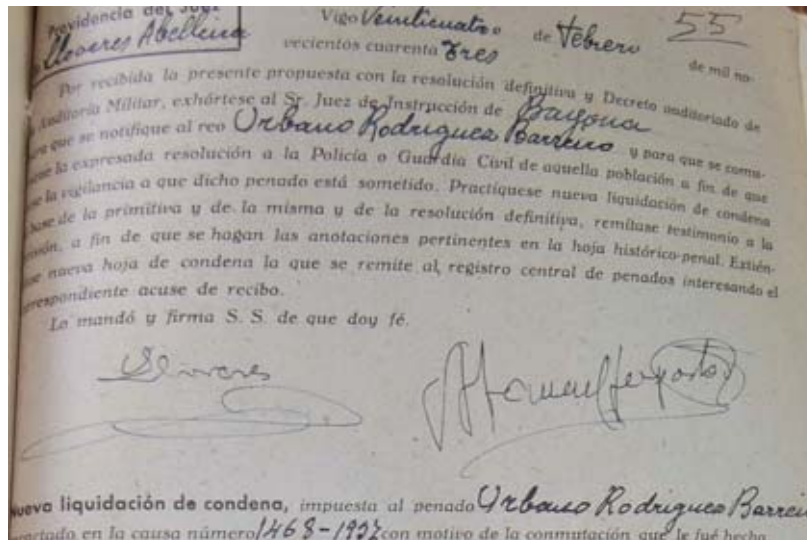 Providencia del Juez Vigo Veinticuatro de Febrero 55
Lloveres Abelleira vecientos cuarenta Tres de mil no-
Por recibida la presente propuesta con la resolución definitiva y Decreto auditoriado de
Auditoría Militar, exhórtese al Sr. Juez de Instrucción de Bayona
para que se notifique al reo Urbano Rodriguez Barreiro y para que se comu-
la expresada resolución a la Policía o Guardia Civil de aquella población a fin de que
la vigilancia a que dicho penado está sometido. Practíquese nueva liquidación de condena
base de la primitiva y de la misma y de la resolución definitiva, remítase testimonio a la
a fin de que se hagan las anotaciones pertinentes en la hoja histórico-penal. Extién-
nueva hoja de condena la que se remite al registro central de penados interesando el
correspondiente acuse de recibo.
Lo mandó y firma S. S. de que doy fé.
Nueva liquidación de condena, impuesta al penado Urbano Rodriguez Barrei
en la causa número 1468-1937 con motivo de la conmutación que le fué hecha